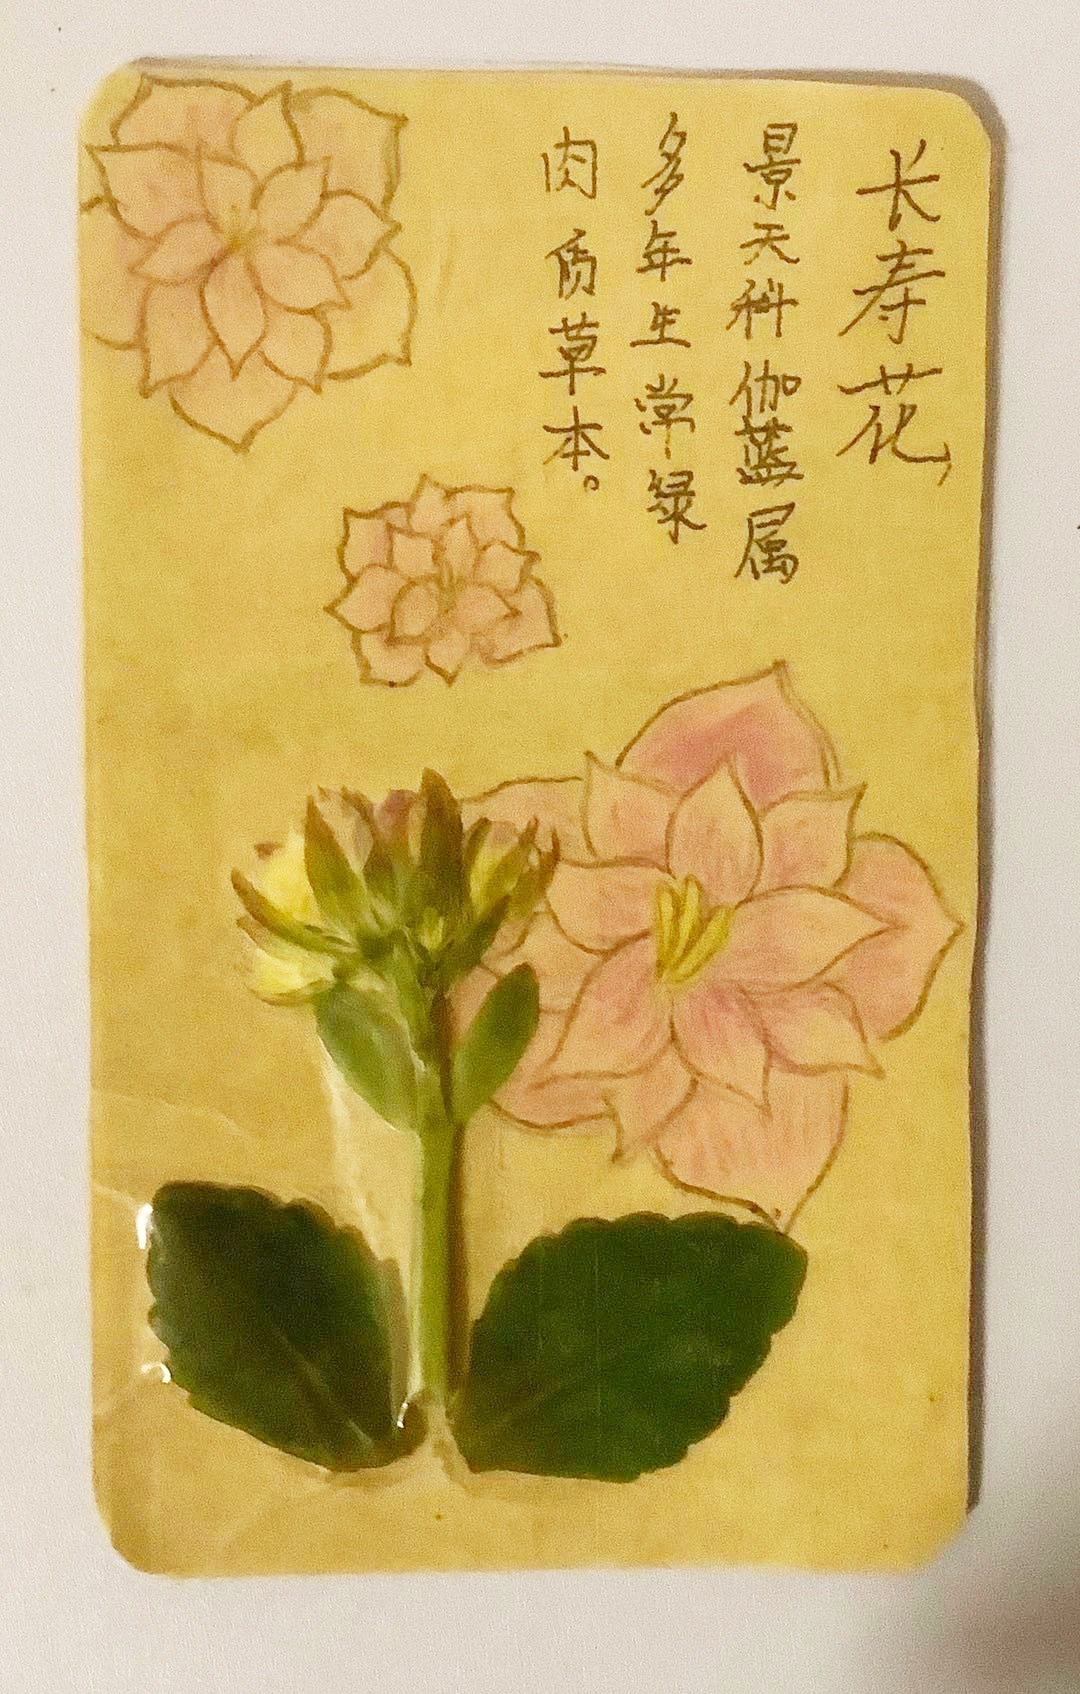 长寿花
景天科伽蓝属
多年生常绿
肉质草本。